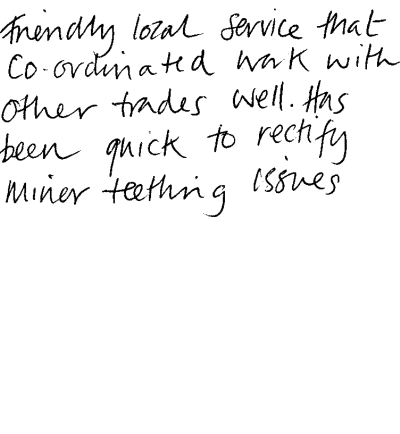 Friendly local service that
Co-ordinated work with
other trades well. Has
been quick to rectify
miner teething issues